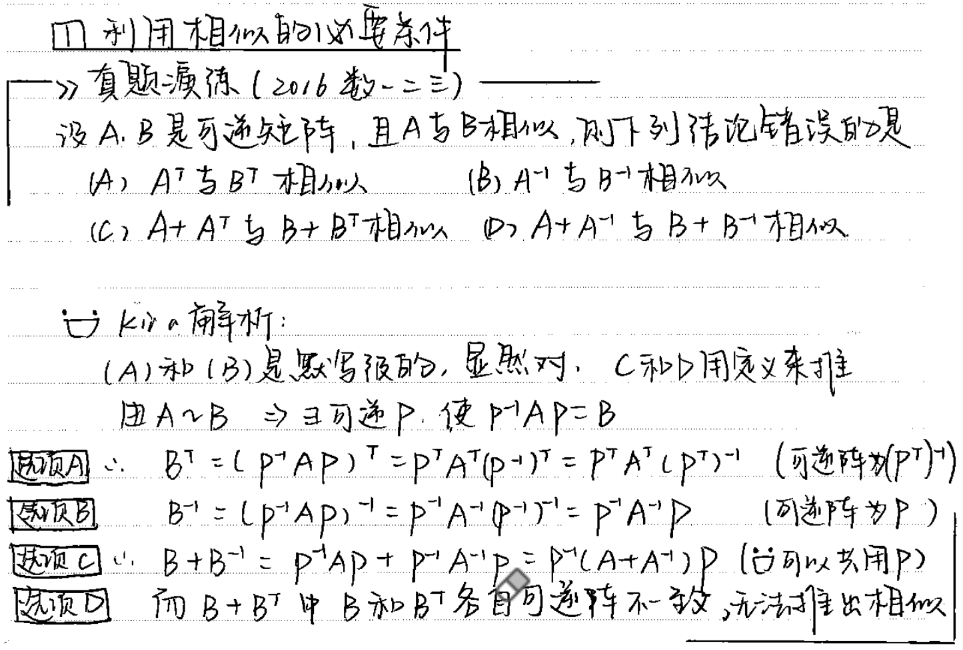 [1] 利用相似的必要条件
>> 真题演练(2016 数一二三)
设 A. B 是可逆矩阵, 且 A 与 B 相似, 则下列结论错误的是
(A) Aᵀ 与 Bᵀ 相似 (B) A⁻¹ 与 B⁻¹ 相似
(C) A + Aᵀ 与 B + Bᵀ 相似 (D) A + A⁻¹ 与 B + B⁻¹ 相似
Kira 解析:
(A) 和 (B) 是默写级的, 显然对. C 和 D 用定义来推
由 A ~ B ⇒ ∃ 可逆 P. 使 P⁻¹AP = B
选项A ∴ Bᵀ = (P⁻¹AP)ᵀ = PᵀAᵀ(P⁻¹)ᵀ = PᵀAᵀ(Pᵀ)⁻¹ (可逆阵为(Pᵀ)⁻¹)
选项B B⁻¹ = (P⁻¹AP)⁻¹ = P⁻¹A⁻¹(P⁻¹)⁻¹ = P⁻¹A⁻¹P (可逆阵为P)
选项C ∴ B + B⁻¹ = P⁻¹AP + P⁻¹A⁻¹P = P⁻¹(A + A⁻¹)P (可以共用P)
选项D 而 B + Bᵀ 中 B 和 Bᵀ 各自可逆阵不一致, 无法推出相似